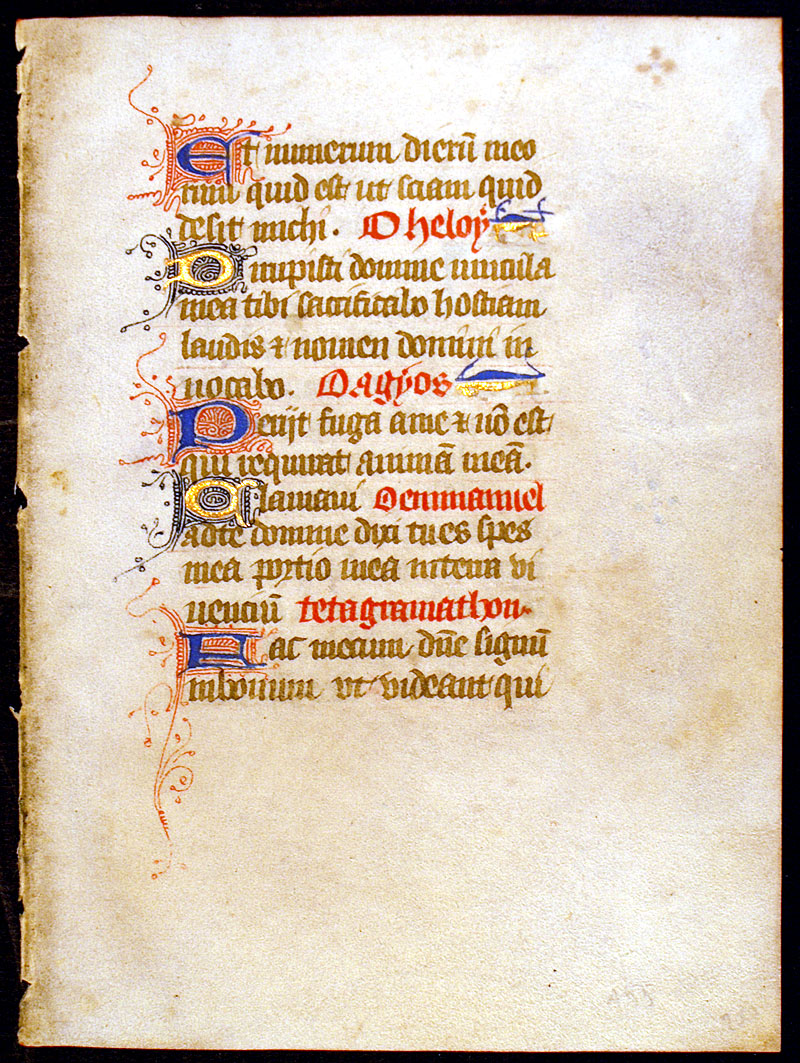 Et numerum dierū meo
rum quid est ut sciam quid
desit michi. O heloÿ
Dirupisti domine uincula
mea tibi sacrificabo hostiam
laudis ⁊ nomen domini in
uocabo. O agÿos
Perijt fuga a me ⁊ nō est
qui requirat animā meā.
Clamaui O emmanuel
ad te domine dixi tu es spes
mea portio mea in terra vi
uenciū tetagramathon.
Fac mecum dn̄e signū
in bonum vt videant qui